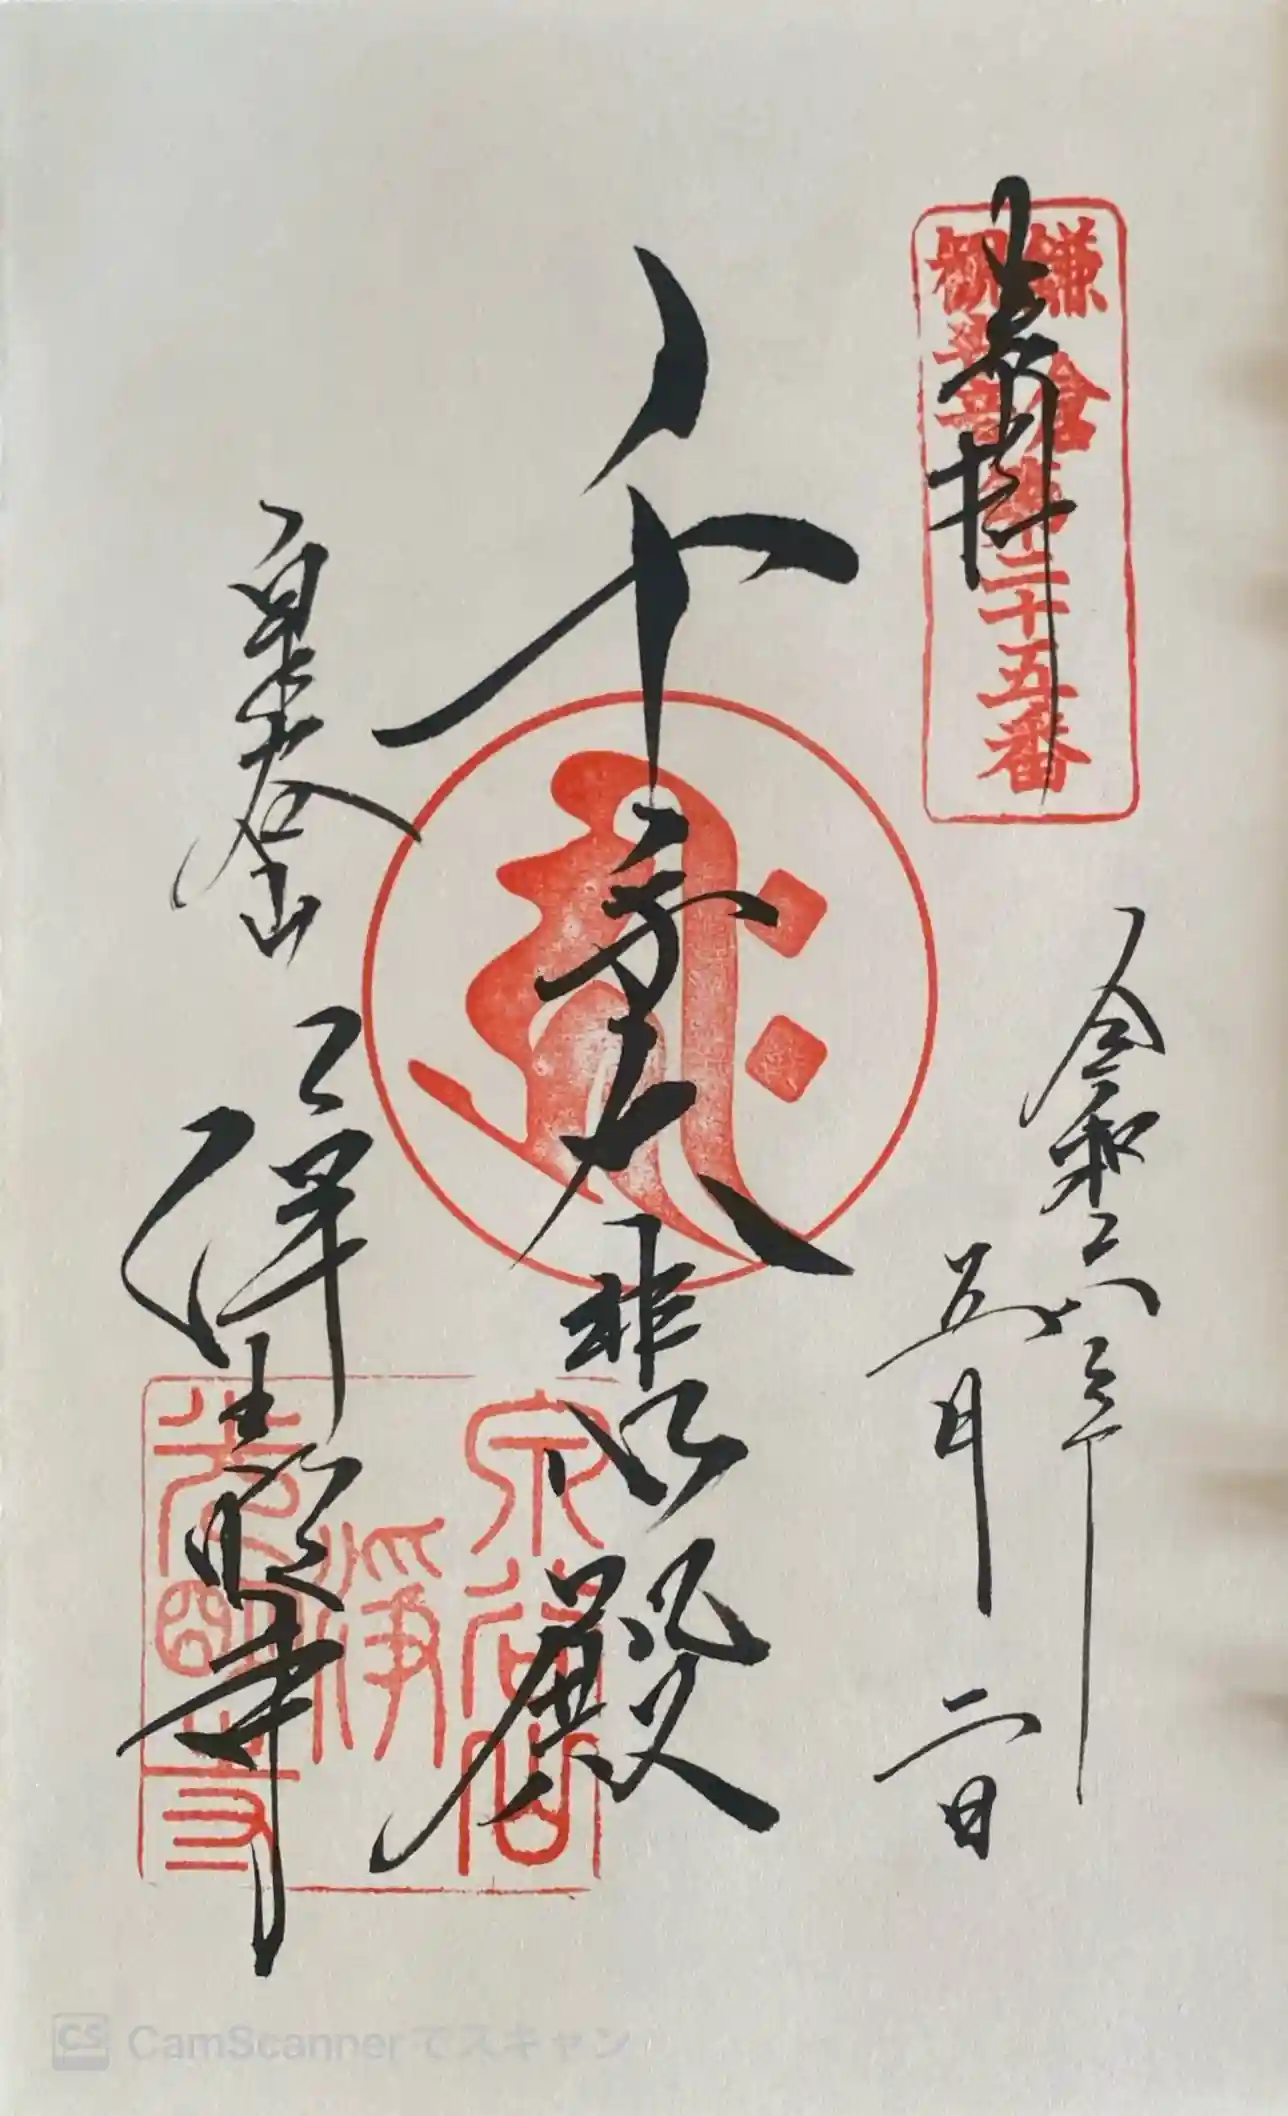 奉拝
鎌倉
観世音
第二十五番
令和六年
五月二日
千手大悲殿
泉谷山
浄光明寺
泉谷山
淨
光明寺
CS CamScannerでスキャン